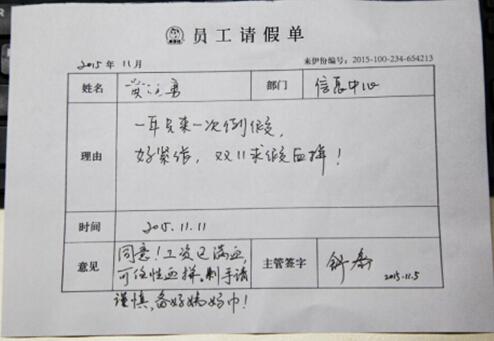 员工请假单
2015年 11月
来伊份编号：2015-100-234-654213
姓名
部门 信息中心
理由
一年只来一次例假,
好紧张, 双11求假血拼!
时间 2015.11.11
意见
同意!工资已满血,
可任性血拼。剁手请
谨慎,备好妈妈巾!
主管签字
2015.11.5